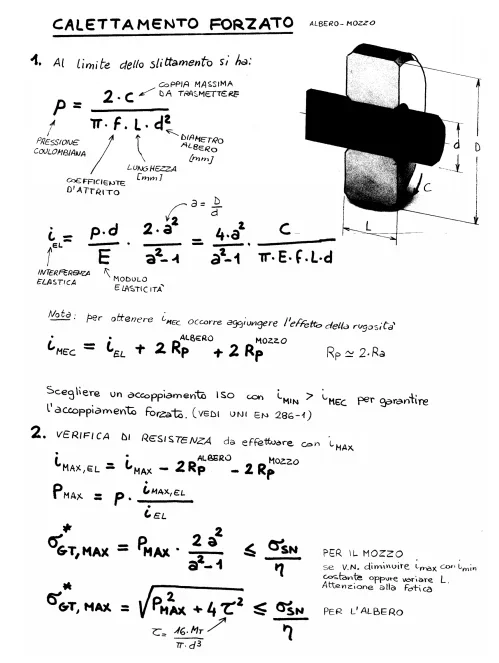 CALETTAMENTO FORZATO ALBERO-MOZZO
1. Al limite dello slittamento si ha:
p = 2·C / π·f·L·d²
COPPIA MASSIMA DA TRASMETTERE
PRESSIONE COULOMBIANA
COEFFICIENTE D'ATTRITO
LUNGHEZZA [mm]
DIAMETRO ALBERO [mm]
d D
L C
a = D/d
i_EL = p·d / E · 2·a² / a²-1 = 4·a² / a²-1 · C / π·E·f·L·d
INTERFERENZA ELASTICA
MODULO ELASTICITÀ
Nota: per ottenere i_MEC occorre aggiungere l'effetto della rugosità
i_MEC = i_EL + 2Rp ALBERO + 2Rp MOZZO Rp ≃ 2·Ra
Scegliere un accoppiamento ISO con i_MIN > i_MEC per garantire
l'accoppiamento forzato. (VEDI UNI EN 286-1)
2. VERIFICA DI RESISTENZA da effettuare con i_MAX
i_MAX,EL = i_MAX - 2Rp ALBERO - 2Rp MOZZO
P_MAX = P · i_MAX,EL / i_EL
σ*_GT,MAX = P_MAX · 2a² / a²-1 ≤ σ_SN / η
PER IL MOZZO
se V.N. diminuire i_max con i_min
costante oppure variare L.
Attenzione alla fatica
σ*_GT,MAX = √(P²_MAX + 4τ²) ≤ σ_SN / η PER L'ALBERO
τ = 16·M_T / π·d³